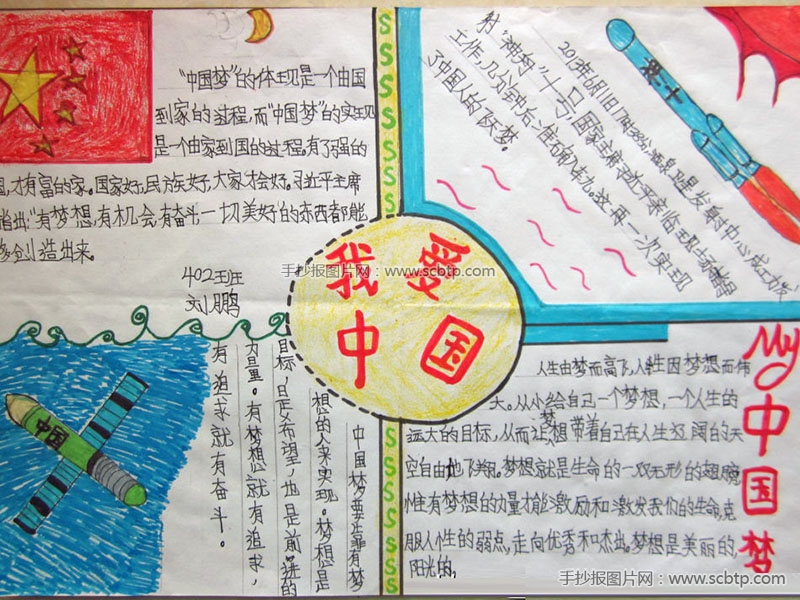 "中国梦"的体现是一个由国
到家的过程,而"中国梦"的实现
是一个由家到国的过程。有了强的
国,才有富的家。国家好,民族好,大家才会好。习近平主席
指出:"有梦想,有机会,有奋斗,一切美好的东西都能
够创造出来。
402班
刘鹏
2013年6月11日17时38分酒泉卫星发射中心成功发
射"神舟"十号,国家主席习近平亲临现场指挥
工作,几分钟后准确入轨。这再一次实现
了中国人的飞梦。
神十
我爱
中国
手抄报图片网:www.scbtp.com
中国
中国梦要靠有梦
想的人来实现。梦想是
目标,是希望,也是前进的
力量。有梦想就有追求,
有追求就有奋斗。
My中国梦
人生由梦而高飞,人生因梦想而伟
大。从小给自己一个梦想,一个人生的
远大的目标,从而让梦想带着自己在人生辽阔的天
空自由地飞翔。梦想就是生命的一双无形的翅膀
惟有梦想的力量才能激励和激发我们的生命,克
服人性的弱点,走向优秀和杰出。梦想是美丽的,
阳光的,
手抄报图片网:www.scbtp.com